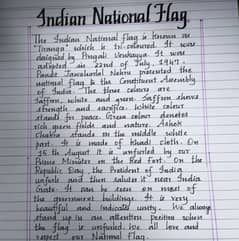 Indian National Flag
The Indian National flag is known as
"Tiranga" which is tri-coloured. It was
designed by Pingali Venkayya. It was
adopted on 22nd of July, 1947.
Pandit Jawaharlal Nehru presented the
national flag to the Constituent Assembly
of India. The three colours are
Saffron, white and green. Saffron shows
strength and sacrifice. White colour
stands for peace. Green colour denotes
rich green fields and nature. Ashok
Chakra stands in the middle white
part. It is made of khadi cloth. On
15 th August it is unfurled by our
Prime Minister on the Red Fort. On the
Republic Day the President of India
unfurls and then salutes it near India
Gate. It can be seen on most of
the government buildings. It is very
beautiful and indicate unity. We always
stand up in an attention position when
the flag is unfurled. We all love and
respect our National Flag.